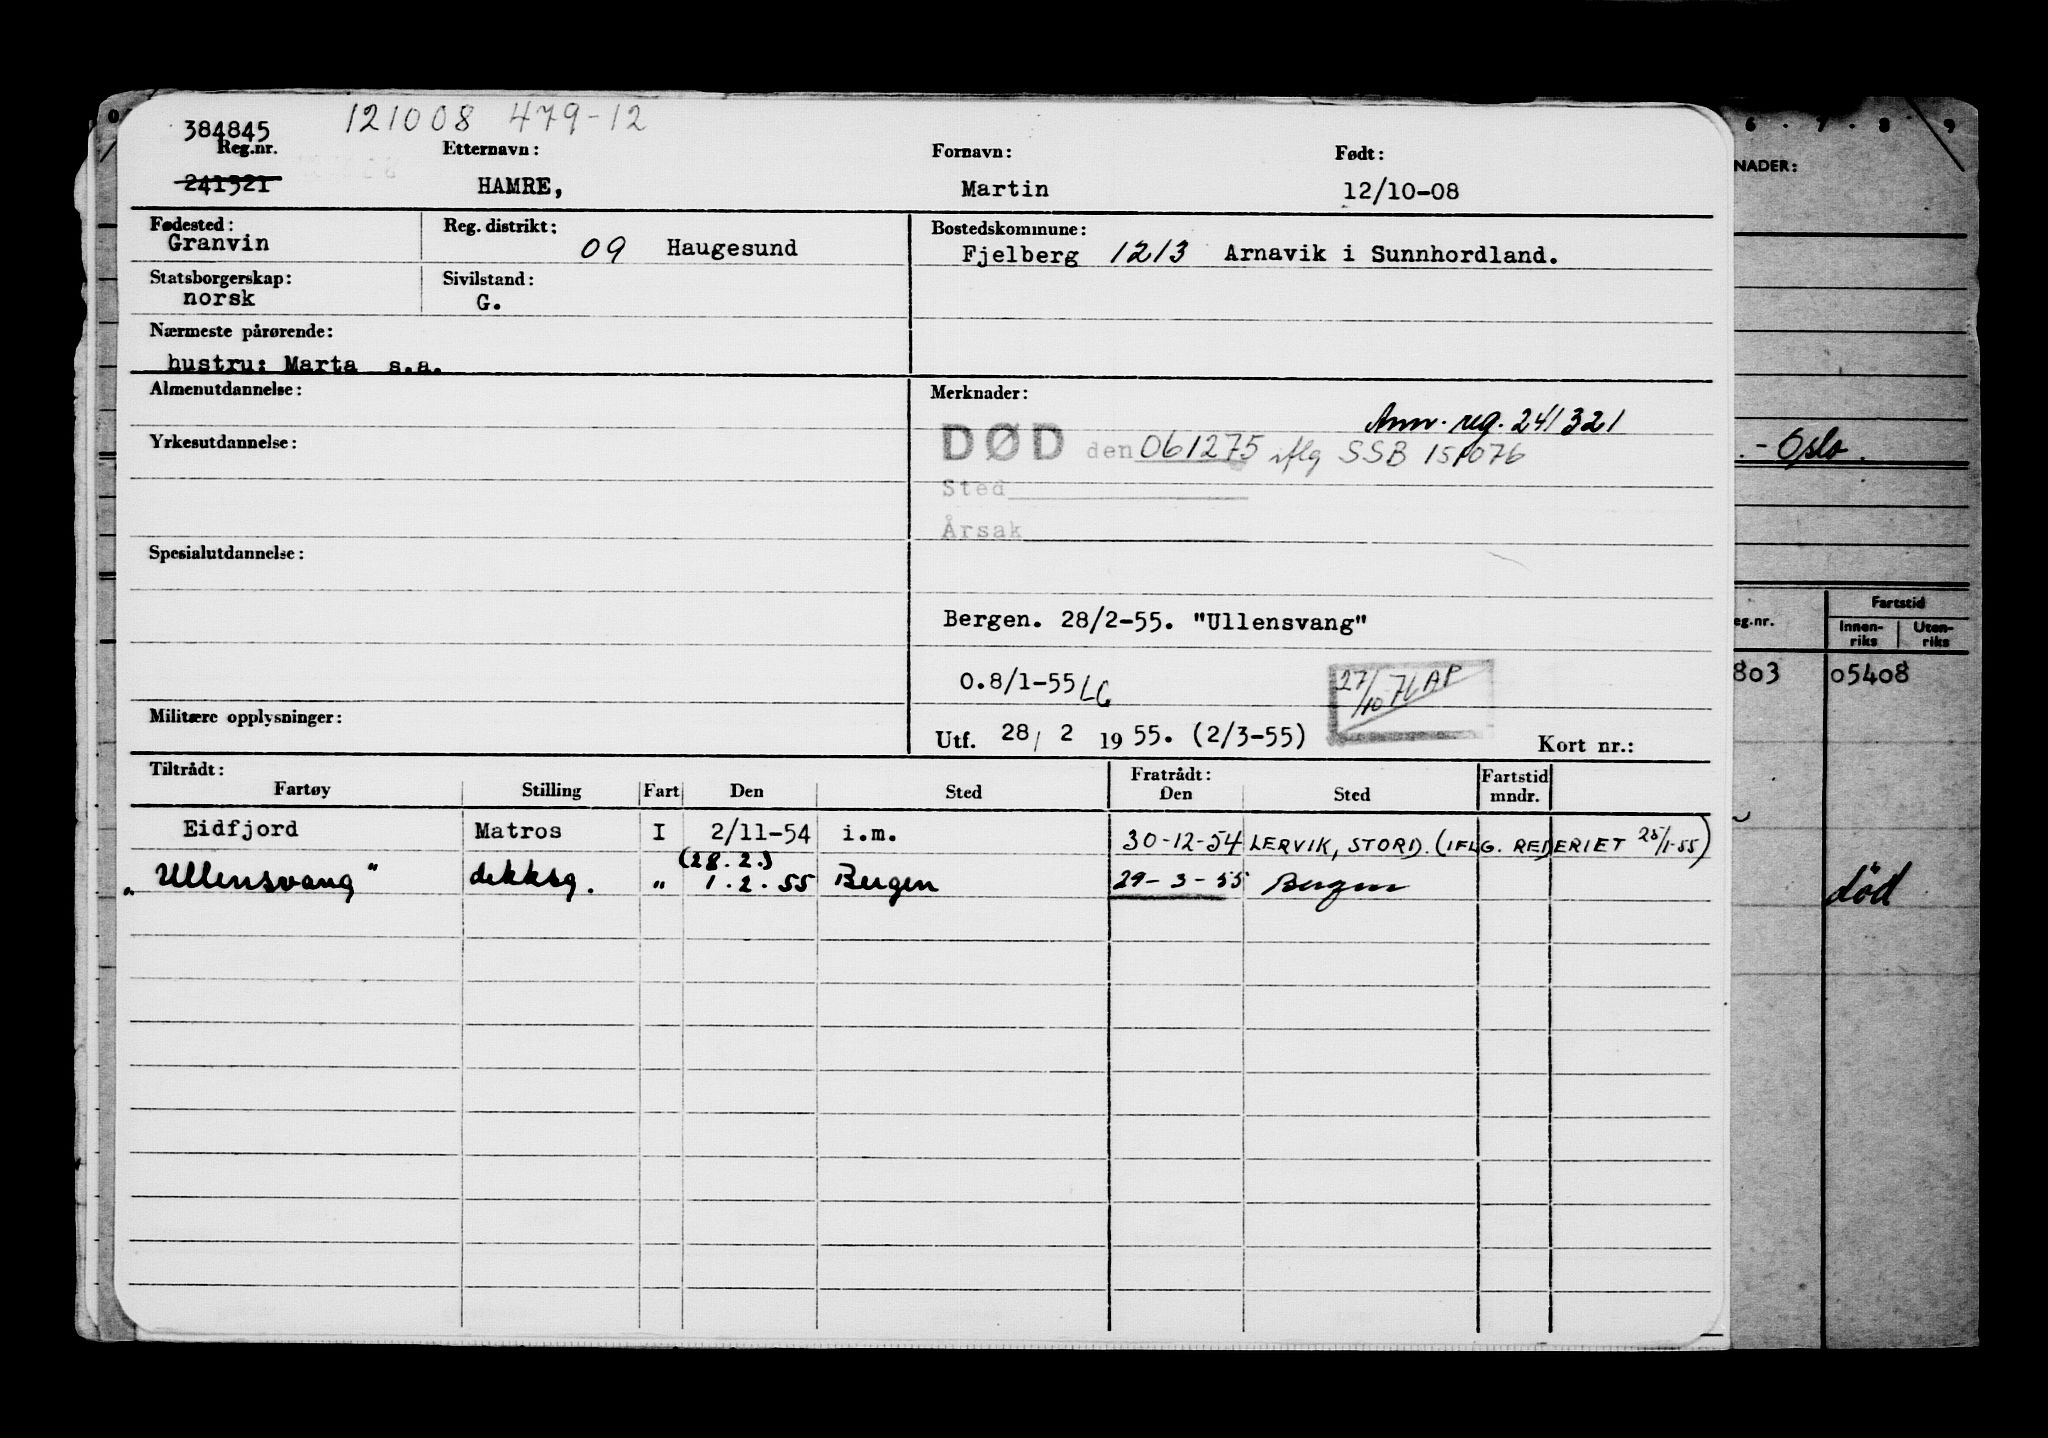 121008 479-12
384845
Reg.nr. Etternavn: Fornavn: Født:
241321 HAMRE, Martin 12/10-08
Fødested: Reg. distrikt: Bostedskommune:
Granvin 09 Haugesund Fjelberg 1213 Arnavik i Sunnhordland.
Statsborgerskap: Sivilstand:
norsk G.
Nærmeste pårørende:
hustru: Marta s.a.
Almenutdannelse: Merknader:
Ann. reg. 241321
Yrkesutdannelse: DØD den 061275 iflg SSB 151076
Sted
Årsak
Spesialutdannelse:
Bergen. 28/2-55. "Ullensvang"
0.8/1-55 LG 27/10 76 AP
Militære opplysninger: Utf. 28/ 2 1955. (2/3-55) Kort nr.:
Tiltrådt: Fratrådt: Fartstid
Fartøy Stilling Fart Den Sted Den Sted mndr.
Eidfjord Matros I 2/11-54 i.m. 30-12-54 LERVIK, STORD. (IFLG. REDERIET 25/1-55)
(28.2.)
"Ullensvang" dekksg. " 1.2.55 Bergen 29-3-55 Bergen
6 7 8 9
NADER:
- Oslo.
eg.nr. Fartstid
Innen-riks Uten-riks
803 05408
død